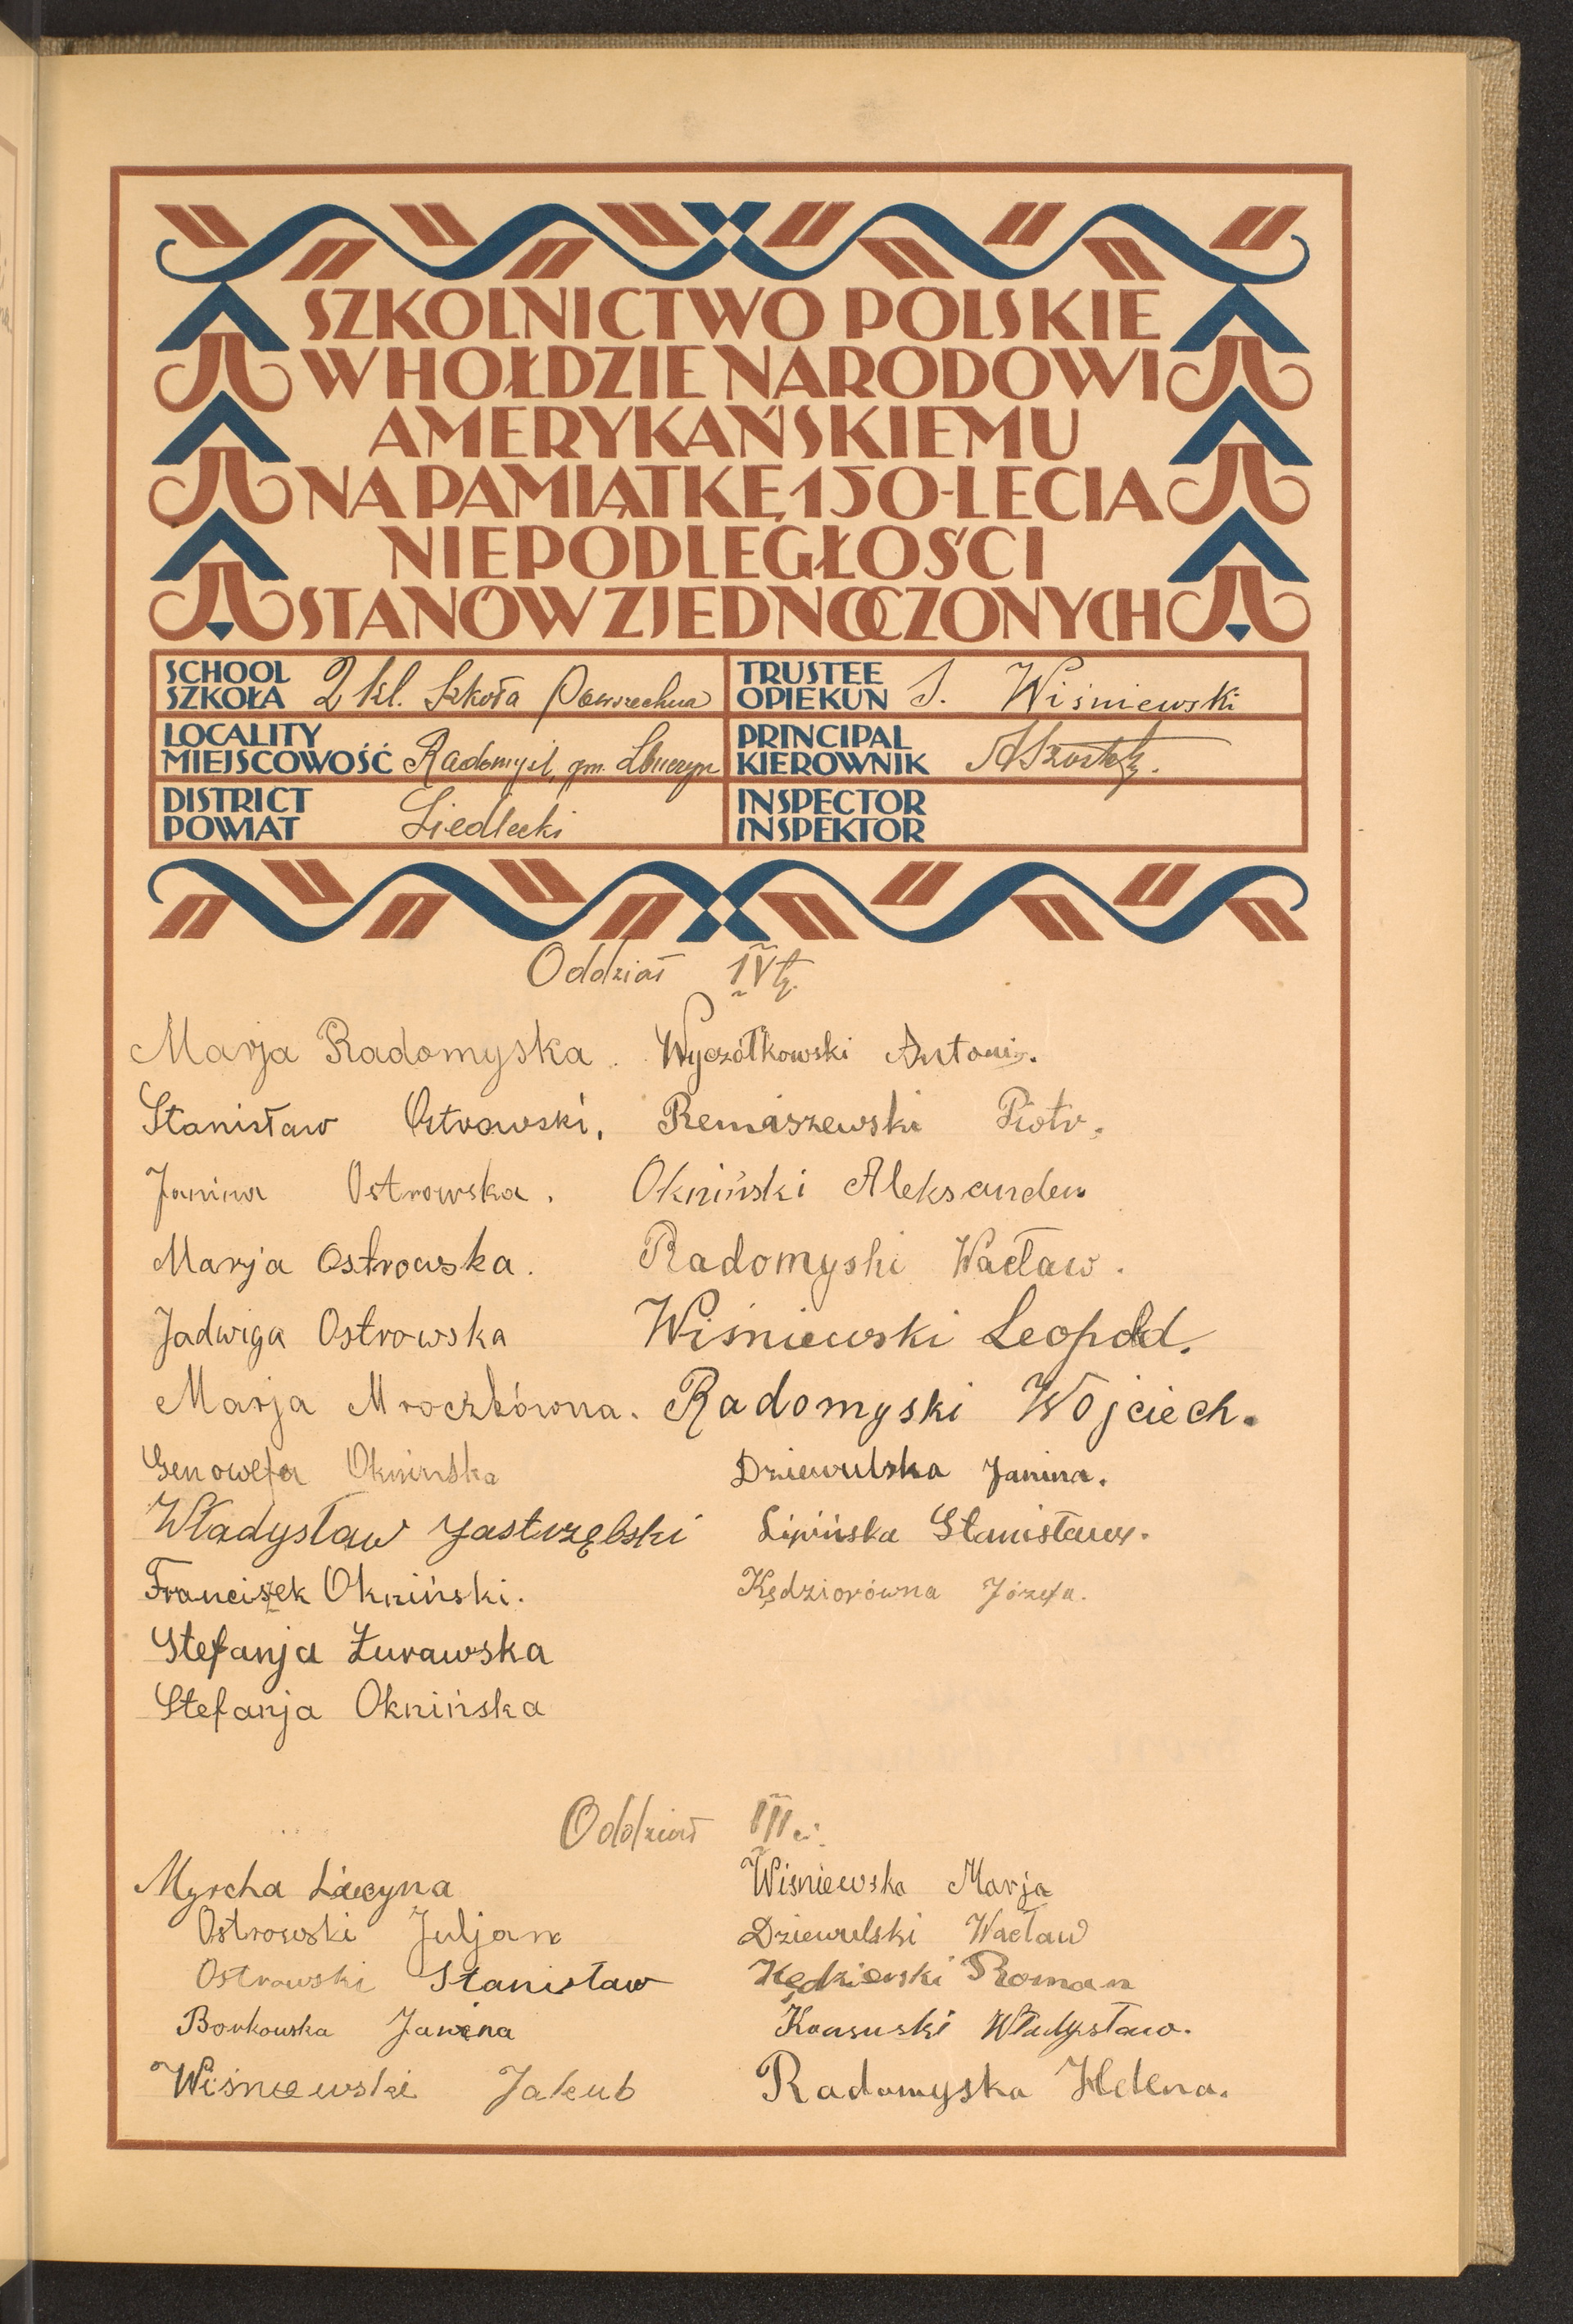 SZKOLNICTWO POLSKIE
W HOŁDZIE NARODOWI
AMERYKAŃSKIEMU
NA PAMIĄTKĘ 150-LECIA
NIEPODLEGŁOŚCI
STANÓW ZJEDNOCZONYCH
SCHOOL
SZKOŁA 2 kl. Szkoła Powszechna
TRUSTEE
OPIEKUN S. Wiśniewski
LOCALITY
MIEJSCOWOŚĆ Radomyśl, gm.
PRINCIPAL
KIEROWNIK
DISTRICT
POWIAT Siedlecki
INSPECTOR
INSPEKTOR
Oddział IVty.
Marja Radomyska. Wyczółkowski Antoni.
Stanisław Ostrowski, Remiszewski Piotr.
Janina Ostrowska. Okniński Aleksander
Marja Ostrowska. Radomyski Wacław.
Jadwiga Ostrowska Wiśniewski Leopold.
Marja Mroczkówna. Radomyski Wojciech.
Genowefa Oknińska Dziewulska Janina.
Władysław Jastrzębski Lipińska Stanisława.
Franciszek Okniński. Kędziorówna Józefa.
Stefanja Żurawska
Stefanja Oknińska
Oddział III ci.
Myrcha Wiśniewska Marja
Ostrowski Juljan Dziewulski Wacław
Ostrowski Stanisław Kędzierski Roman
Borkowska Janina Władysław.
Wiśniewski Jakub Radomyska Helena.